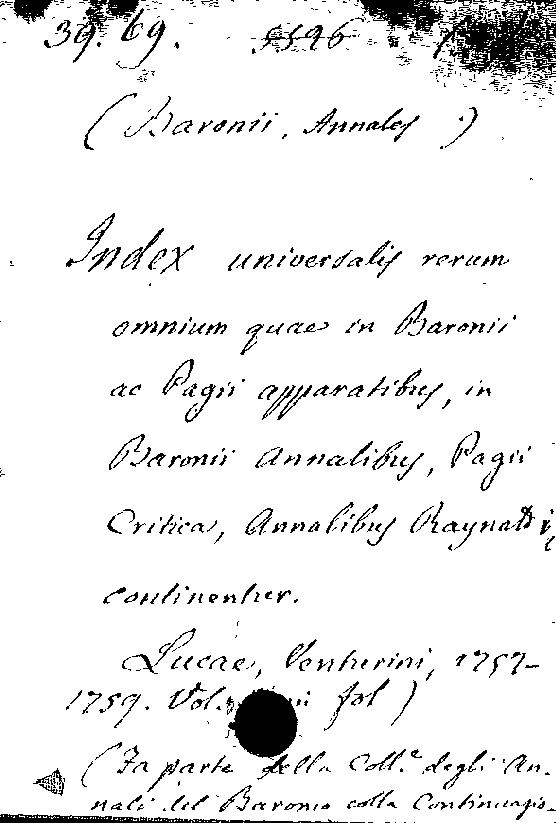 39. 69. 5596
(Baronii, Annales)
Index universalis rerum
omnium quae in Baronii
ac Pagii apparatibus, in
Baronii Annalibus, Pagii
Critica, Annalibus Raynaldi,
continentur.
Lucae, Venturini, 1757-
1759. Vol. fol)
(Fa parte della Coll.e degli An-
nali del Baronio colla Continuazio-